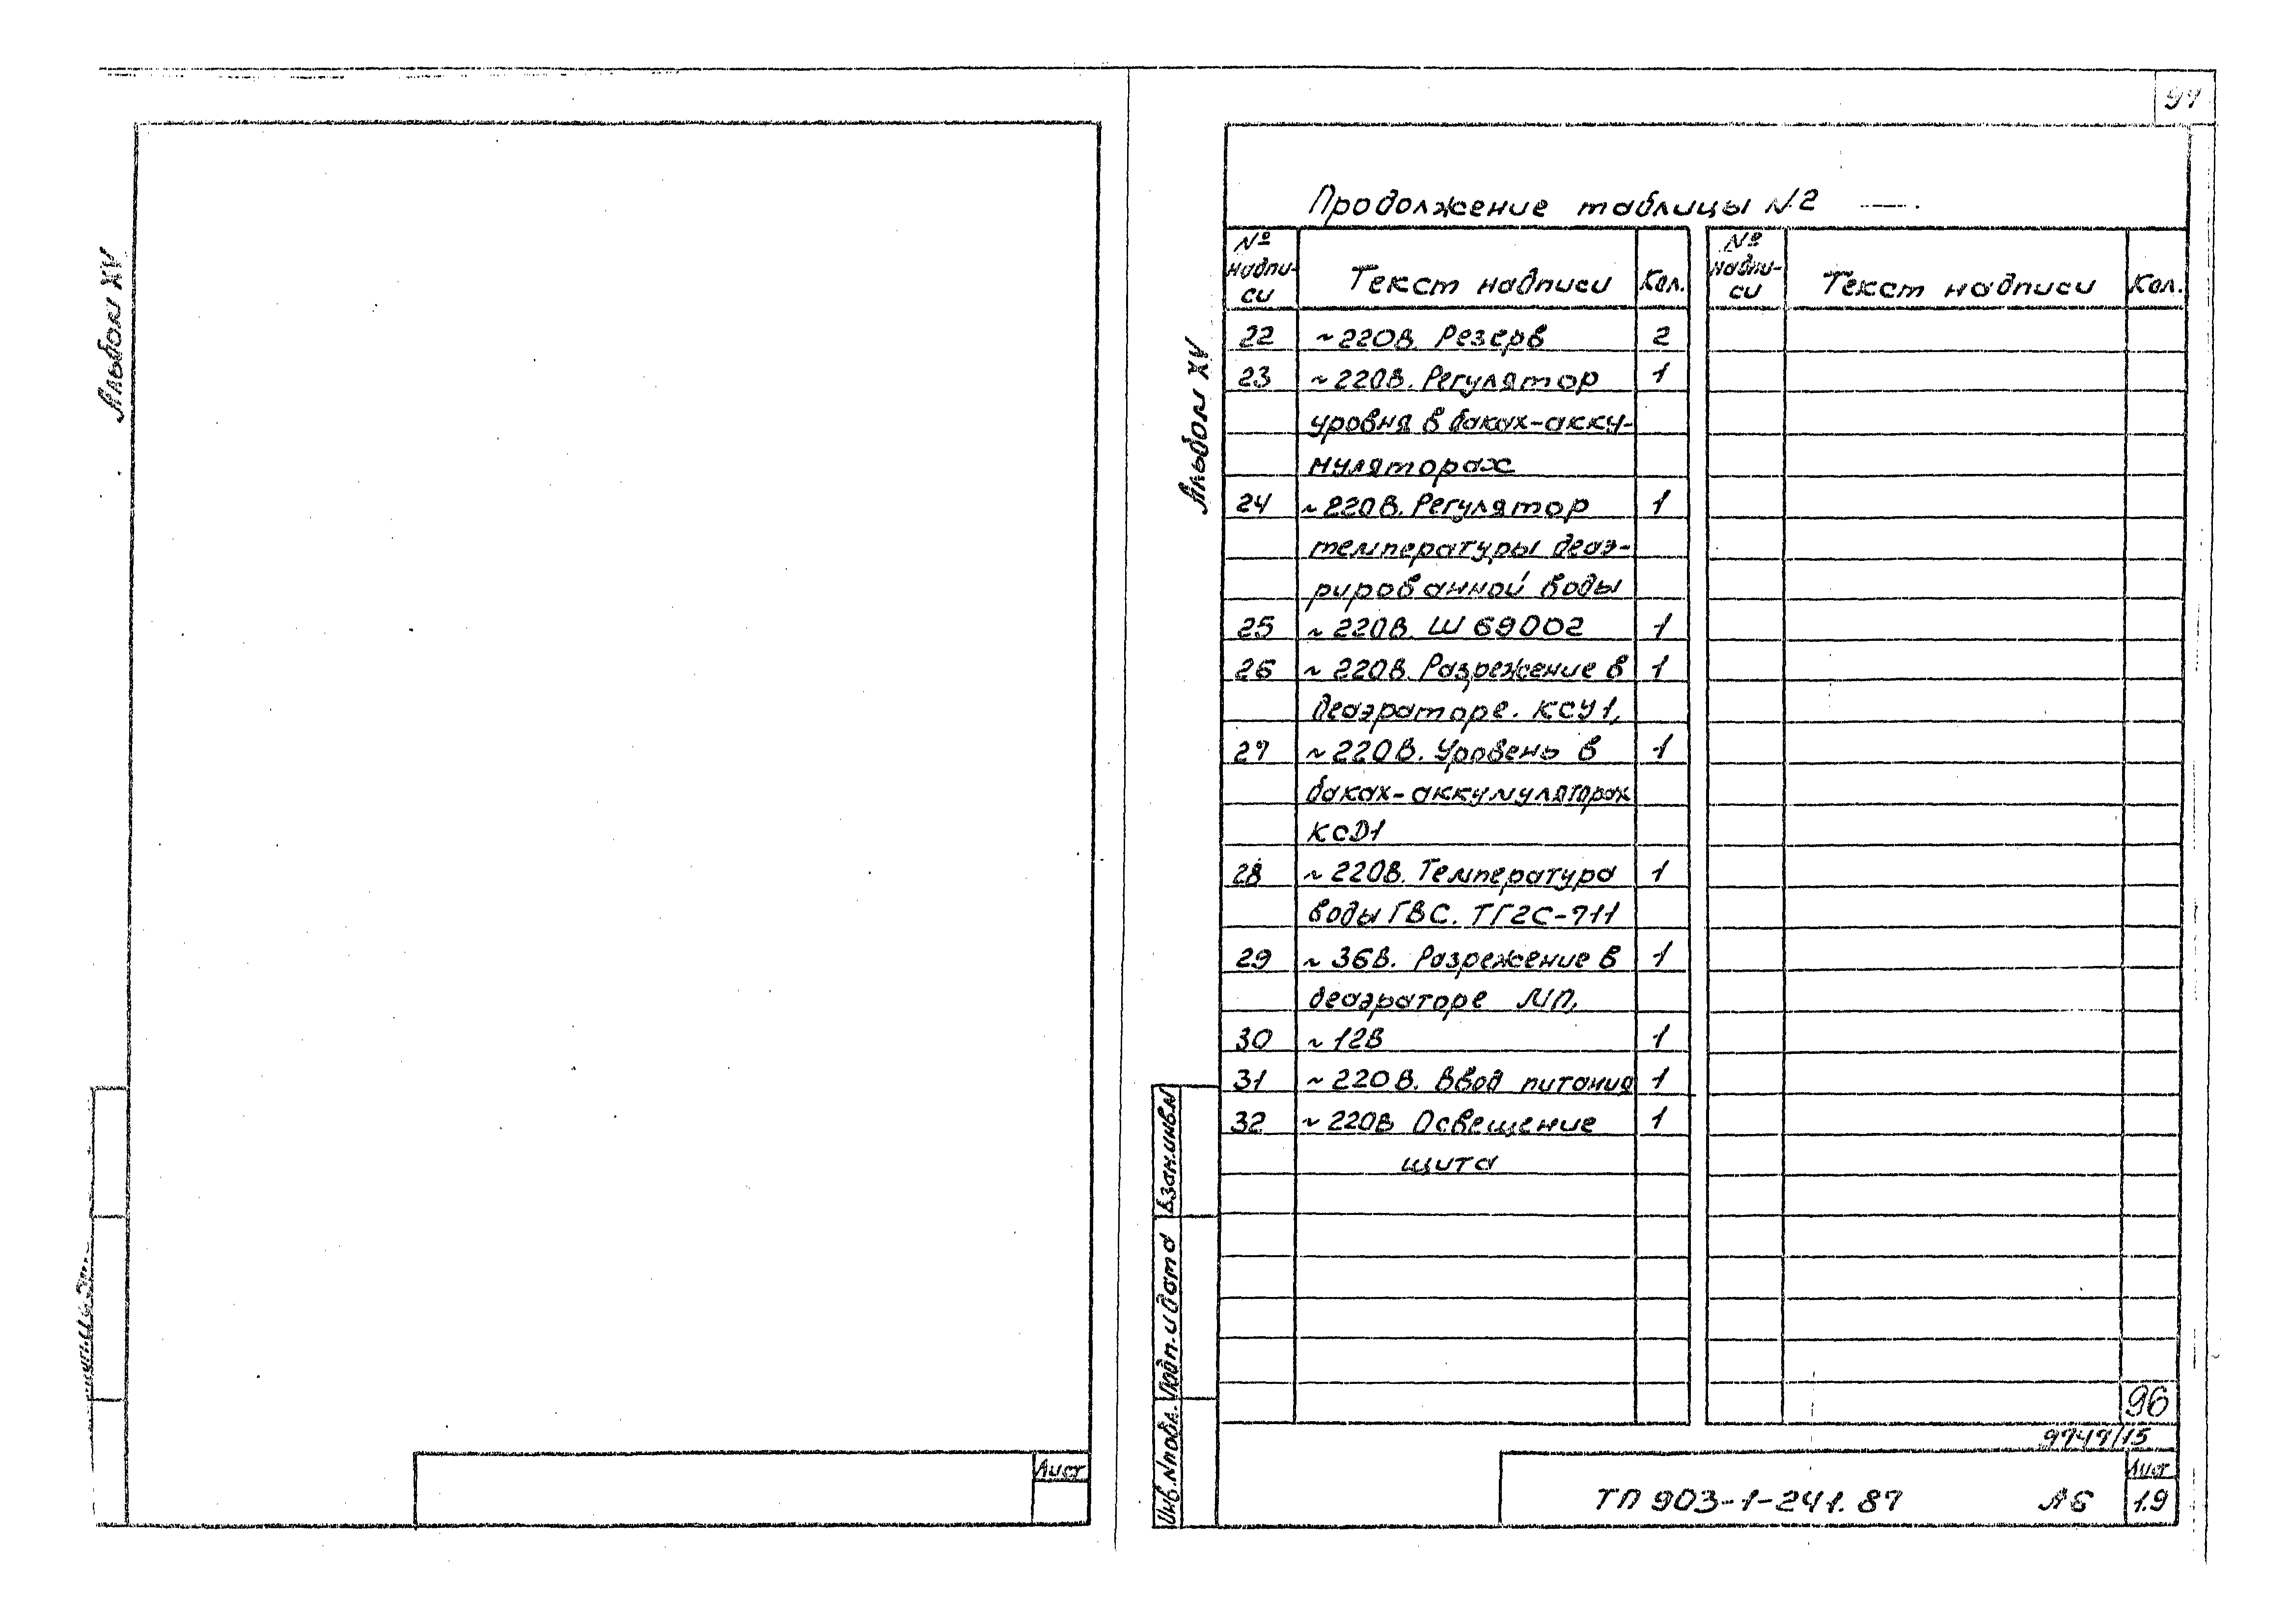 Альбом XV
Лист
97
Альбом XV
Продолжение таблицы N2
№ надпи-си Текст надписи Кол. № надпи-си Текст надписи Кол.
22 ~220В. Резерв 2
23 ~220В. Регулятор 1
уровня в баках-акку-
муляторах
24 ~220В. Регулятор 1
температуры деаэ-
рированной воды
25 ~220В. Ш69002 1
26 ~220В. Разрежение в 1
деаэраторе. КСУ1,
27 ~220В. Уровень в 1
баках-аккумуляторах
КСД1
28 ~220В. Температура 1
воды ГВС. ТГ2С-711
29 ~36В. Разрежение в 1
деаэраторе МП,
30 ~12В 1
31 ~220В. Ввод питания 1
32 ~220В Освещение 1
щита
96
9747/15
Взам.инв.N
Подп.и дата
Инв.Nподл.
ТП 903-1-241.87 А6
Лист
1.9